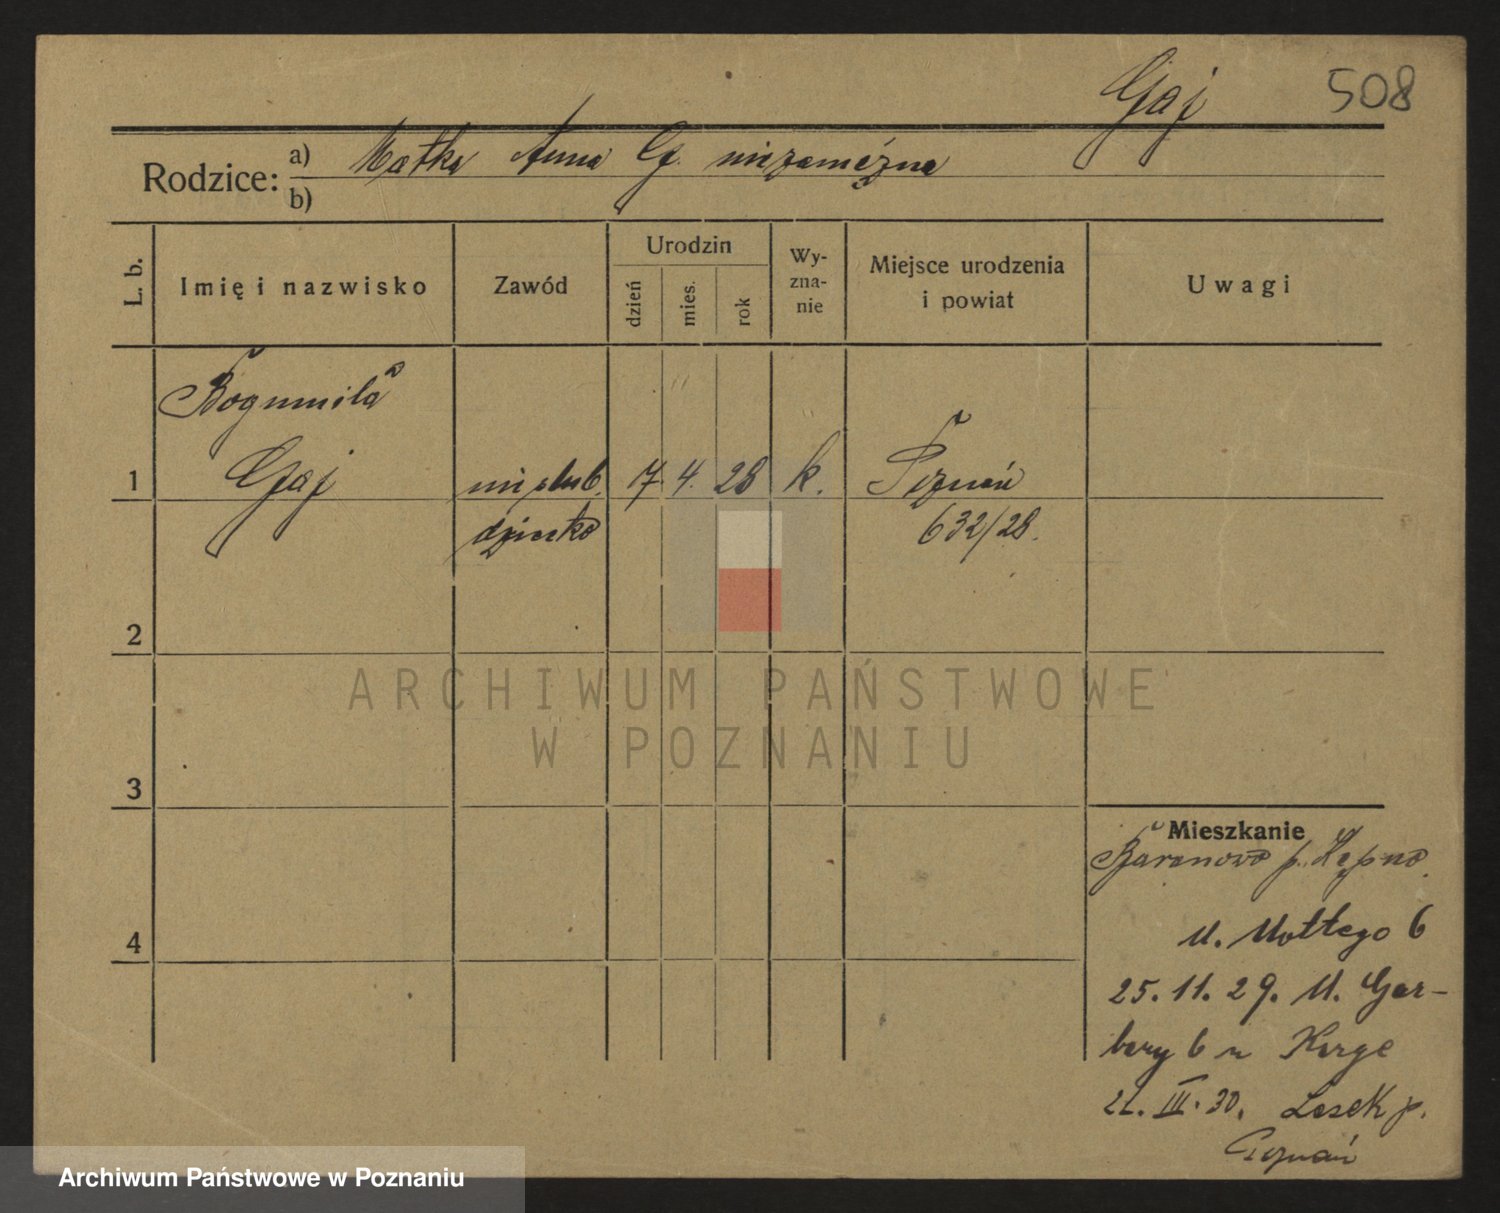 Gaj 508
Rodzice: a) Matka Anna G. niezamężna
b)
L. b. Imię i nazwisko Zawód Urodzin dzień mies. rok Wy-zna-nie Miejsce urodzenia i powiat Uwagi
Bogumiła
1 Gaj nieślub. 7. 4. 28 k. Poznań
dziecko 632/28.
2
3
4
Mieszkanie
Baranowo p. Kępno.
M. Mottego 6
25.11.29. M. Gar-
bary 6 u Kerge
21. III. 30. Lasek p.
Poznań
ARCHIWUM PAŃSTWOWE
W POZNANIU
Archiwum Państwowe w Poznaniu